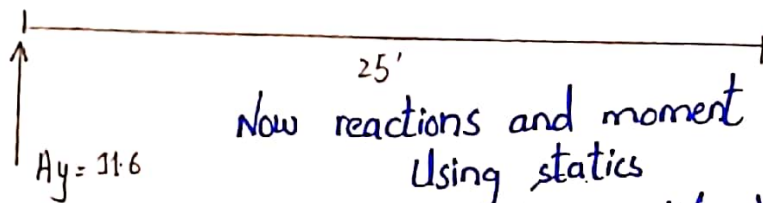 25'
Now reactions and moment
Ay = 31.6
Using statics